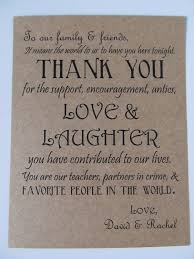 To our family & friends,
It means the world to us to have you here tonight.
THANK YOU
for the support, encouragement, antics,
LOVE &
LAUGHTER
you have contributed to our lives.
You are our teachers, partners in crime, &
FAVORITE PEOPLE IN THE WORLD.
Love,
David & Rachel